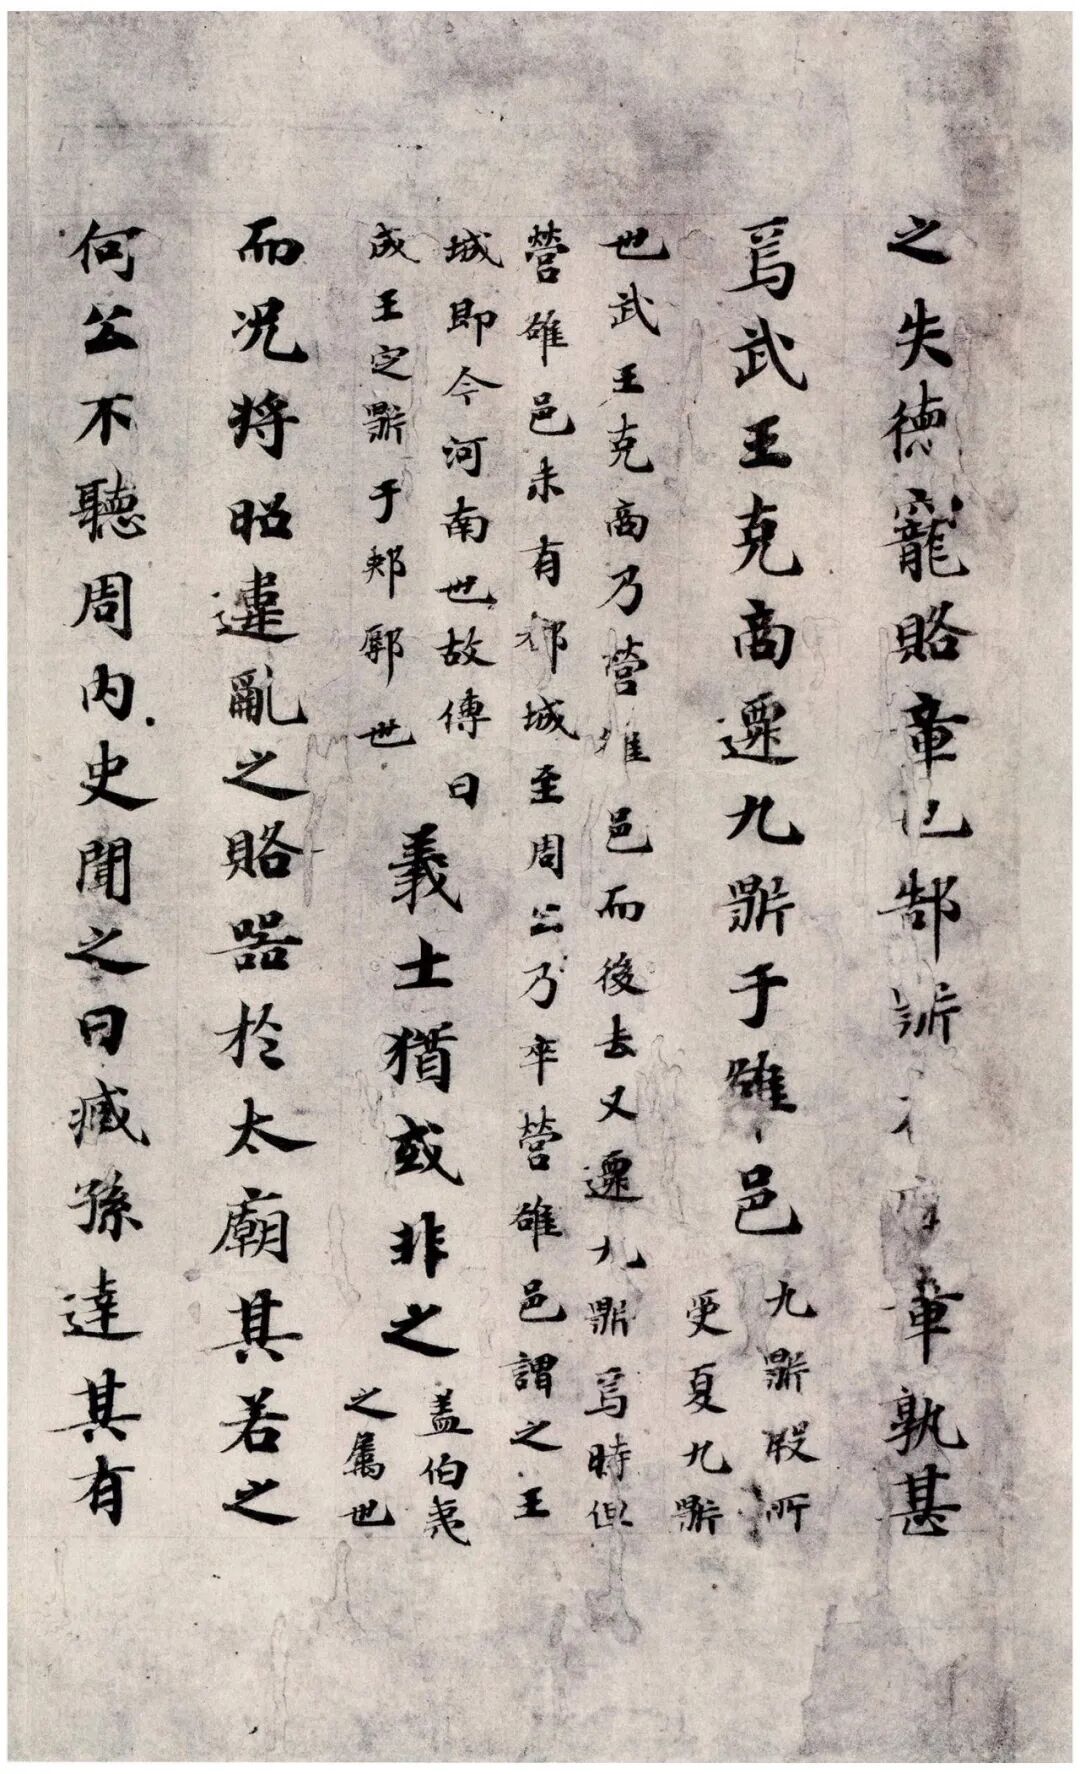 之失德寵賂章也郜鼎在廟章孰甚
焉武王克商遷九鼎于雒邑
九鼎殷所
受夏九鼎
也武王克商乃營雒邑而後去又遷九鼎焉時但
營雒邑未有都城至周公乃卒營雒邑謂之王
城即今河南也故傳曰
成王定鼎于郟鄏也
義士猶或非之
盖伯夷
之屬也
而况將昭違亂之賂器於太廟其若之
何公不聽周内史聞之曰臧孫達其有